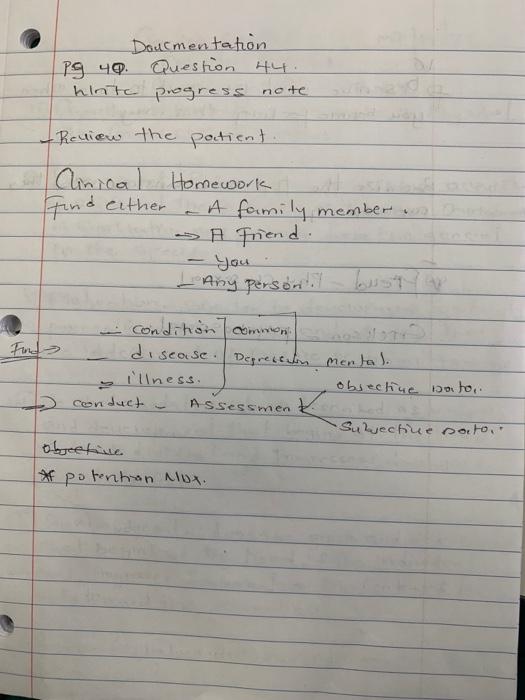 Doucmentation
Pg 40. Question 44.
progress note
- Review the patient.
Clinical Homework
Find either - A family member.
→ A Friend.
- You
- Any person.
- condition common
Find → - disease. Depression mental.
- illness.
→ conduct - Assessment
objective Data.
Subjective Data.
objective
* potention NDX.